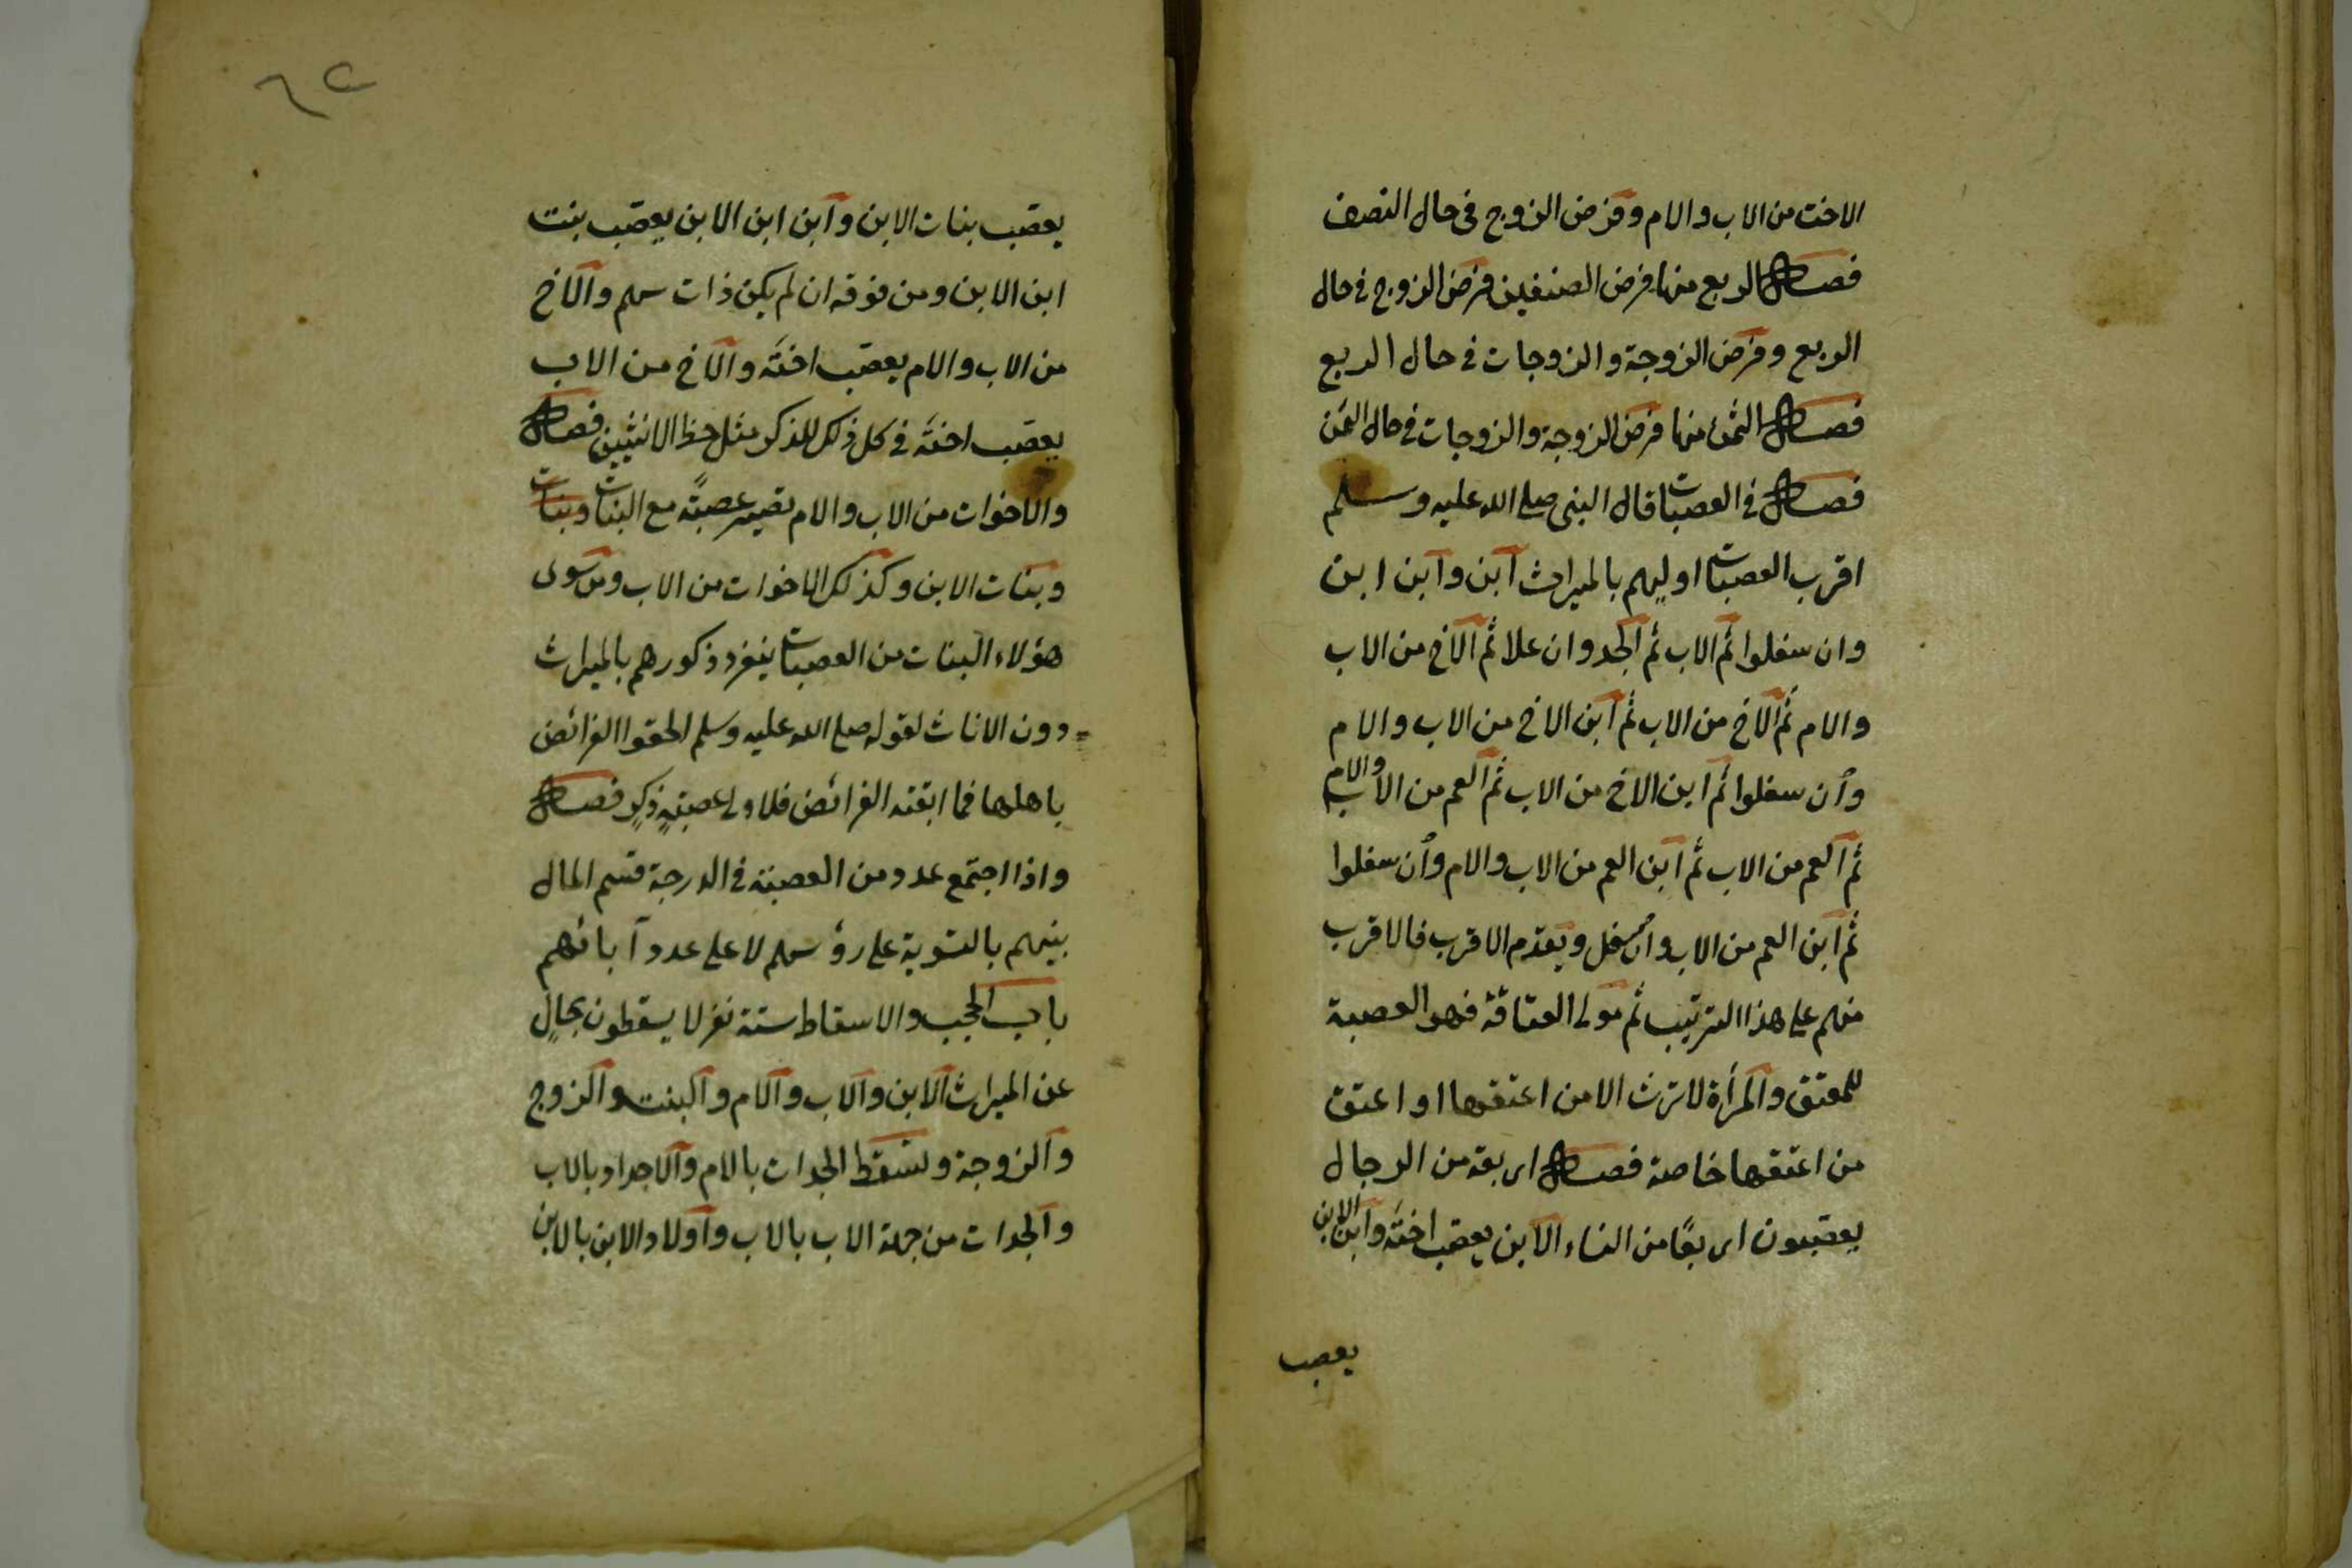 الاخت من الاب والام وفرض الزوج فى حال النصف
فصل الربع منها فرض الصنفين فرض الزوج فى حال
الربع وفرض الزوجة والزوجات فى حال الربع
فصل الثمن منها فرض الزوجة والزوجات فى حال الثمن
فصل فى العصبات قال النبى صلى الله عليه وسلم
اقرب العصبات اوليهم بالميراث ابن وابن ابن
وان سفلوا ثم الاب ثم الجد وان علا ثم الاخ من الاب
والام ثم الاخ من الاب ثم ابن الاخ من الاب والام
وان سفلوا ثم ابن الاخ من الاب ثم العم من الاب والام
ثم العم من الاب ثم ابن العم من الاب والام وان سفلوا
ثم ابن العم من الاب وان سفل ويقدم الاقرب فالاقرب
منهم على هذا الترتيب ثم مولى العتاقة فهو العصبة
للمعتق والمرأة لا ترث الا من اعتقها او اعتق
من اعتقها خاصة فصل اربعة من الرجال
يعصبون اربعًا من النساء الابن يعصب اخته وابن الابن
يعصب
٦٢
يعصب بنات الابن وابن ابن الابن يعصب بنت
ابن الابن ومن فوقه ان لم يكن ذات سهم والاخ
من الاب والام يعصب اخته والاخ من الاب
يعصب اخته فى كل ذلك للذكر مثل حظ الانثيين فصل
والاخوات من الاب والام تصير عصبةً مع البنات وبنات
وبنات الابن وكذلك الاخوات من الاب ومن سوى
هؤلاء البنات من العصبات ينفرد ذكورهم بالميراث
دون الاناث لقوله صلى الله عليه وسلم الحقوا الفرائض
باهلها فما ابقته الفرائض فلاولى عصبةٍ ذكرٍ فصل
واذا اجتمع عدد من العصبة فى الدرجة قسم المال
بينهم بالتسوية على رؤسهم لا على عدد آبائهم
باب الحجب والاسقاط ستة نفر لا يسقطون بحالٍ
عن الميراث الابن والاب والام والبنت والزوج
والزوجة وتسقط الجدات بالام والاجداد بالاب
والجدات من جهة الاب بالاب واولاد الابن بالابن